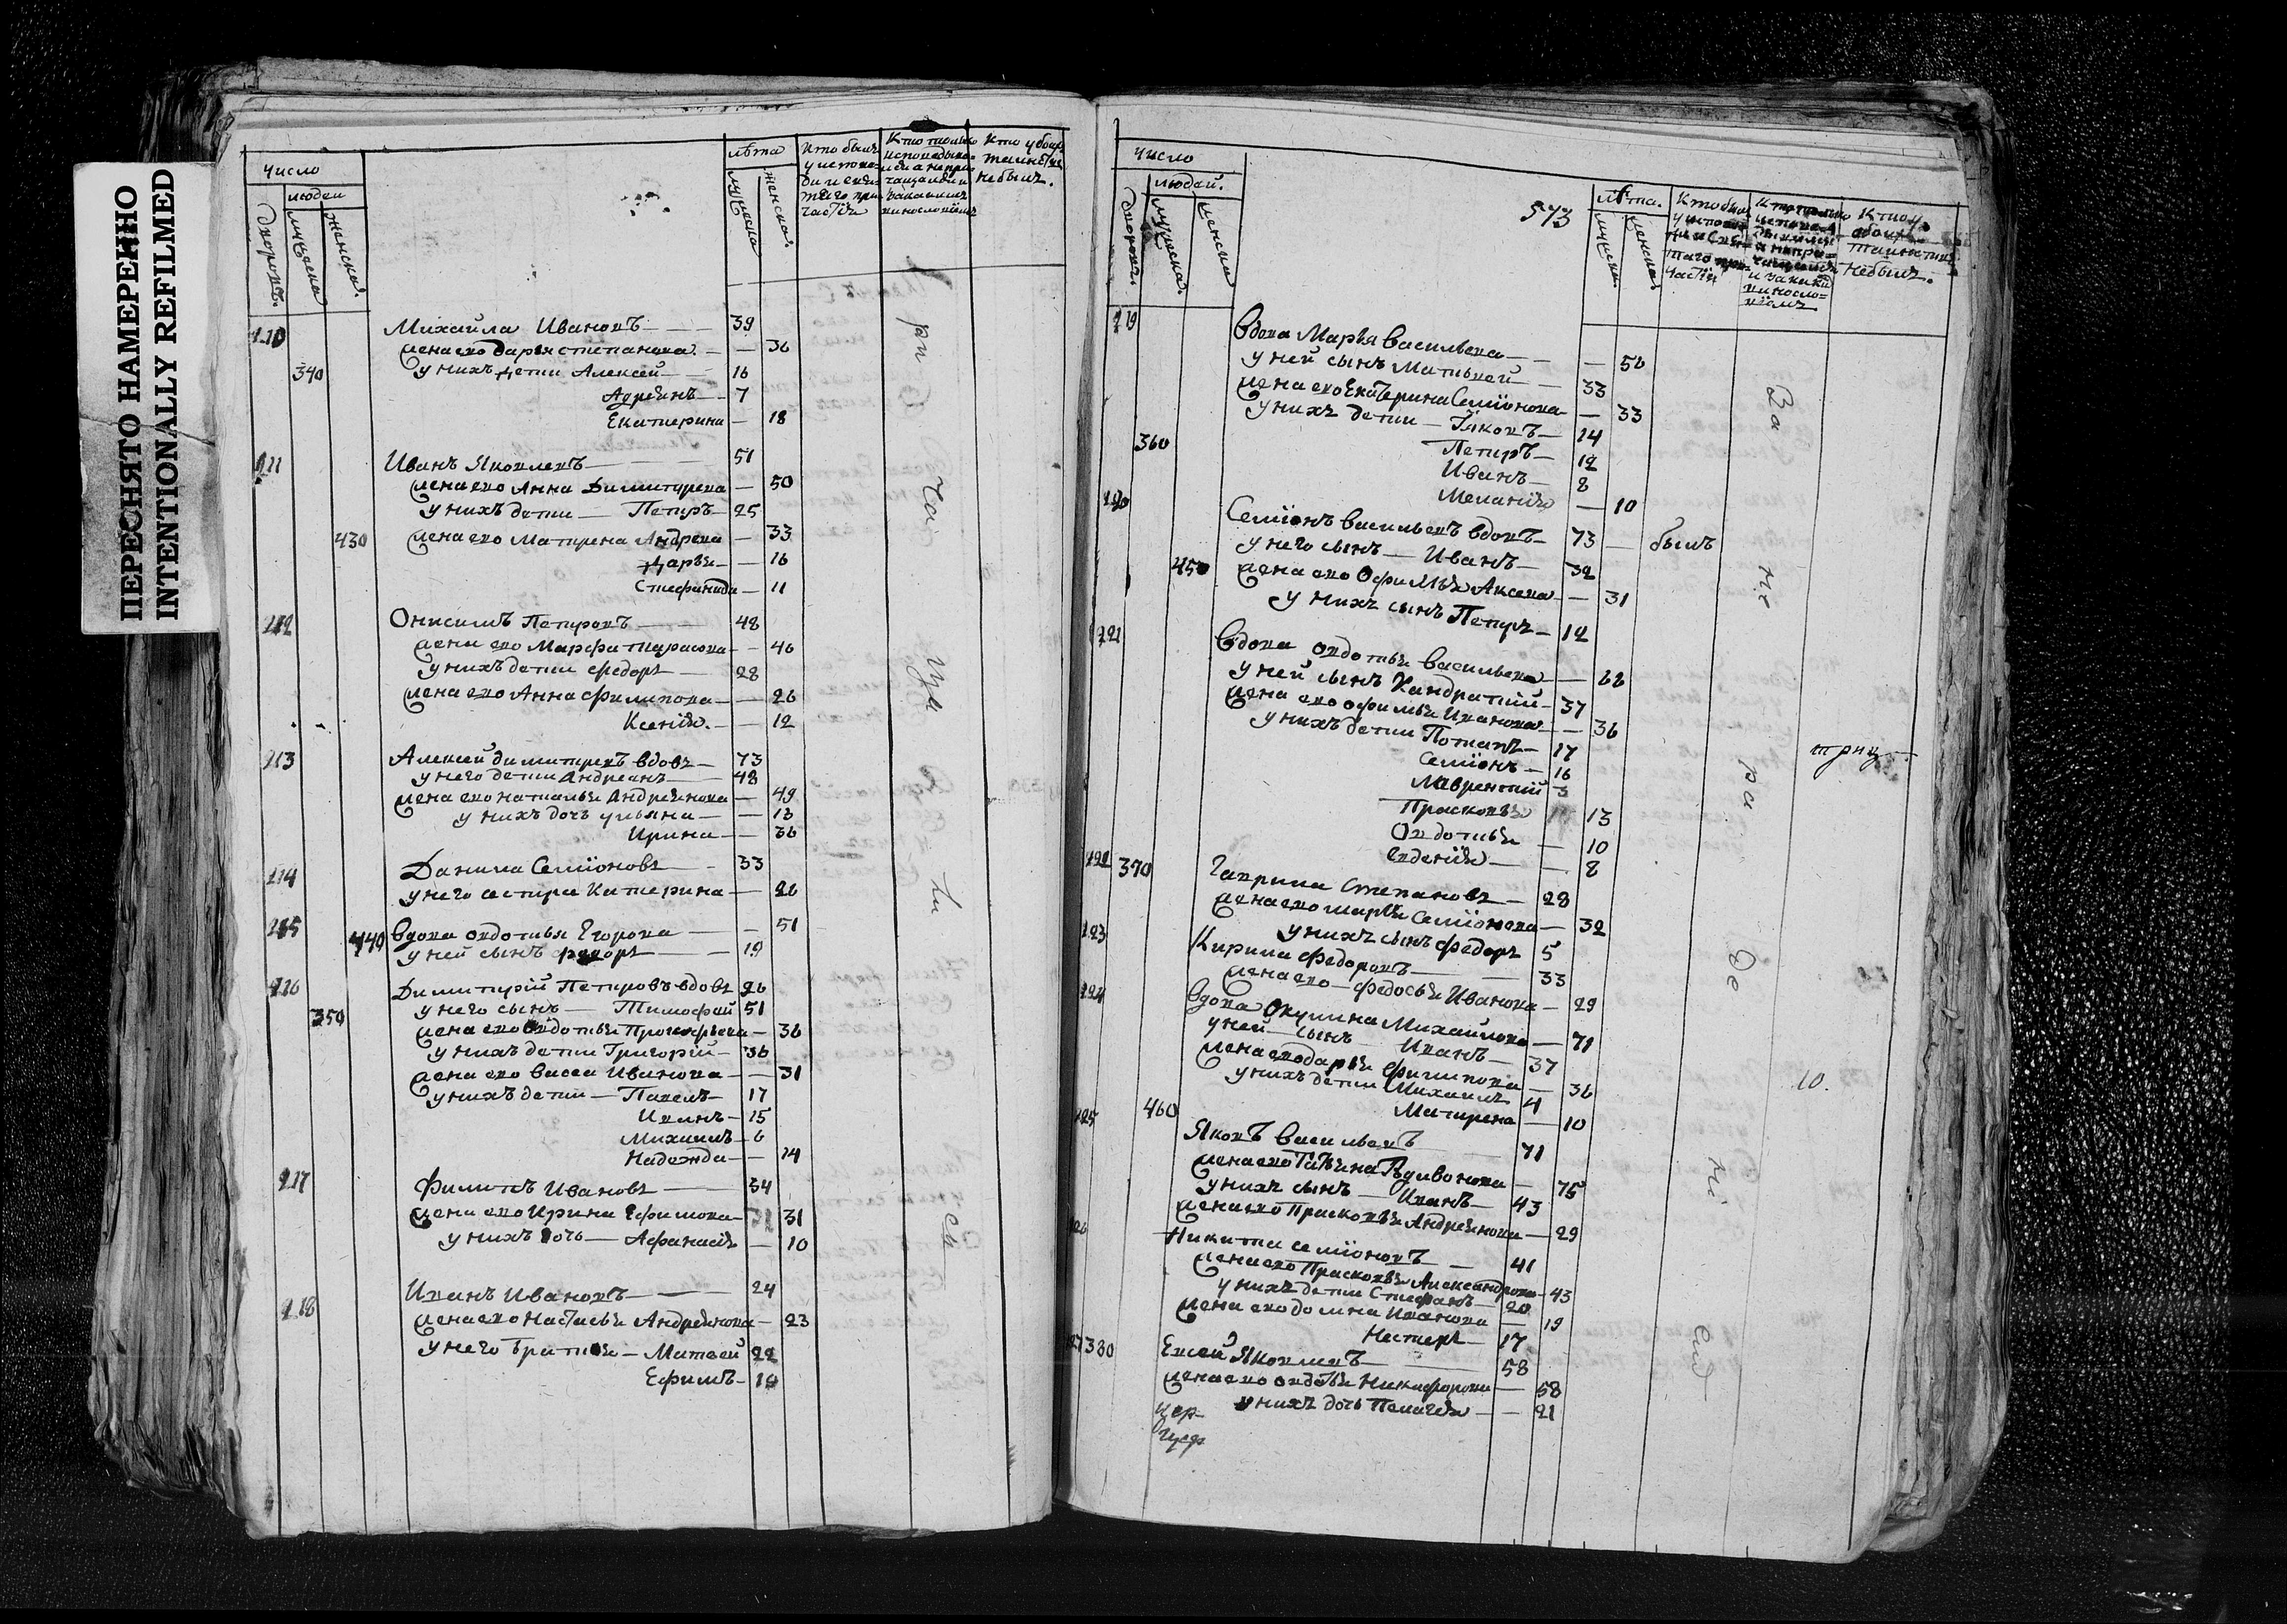 ПЕРЕСНЯТО НАМЕРЕННО
INTENTIONALLY REFILMED
число
людей
дворовъ.
мужеска
женска.
лѣта
мужеска
женска.
Кто былъ
у испове-
ди и свя-
таго при-
частїя
Кто только
исповедыва-
лся а непри-
чащался и
за какимъ
винословїемъ
Кто у обоихъ
таинствъ
небылъ.
110 Михайла Ивановъ 39
жена ево Дарья степанова 36
340 у нихъ дети Алексей 16
Адреянъ 7
Екатерина 18
111 Иванъ Яковлевъ 51
жена ево Анна Димитрева 50
у нихъ дети Петръ 25
430 жена ево Матрена Андрева 33
Дарья 16
Стефанида 11
112 Онисимъ Петровъ 48
жена ево Марфа тарасова 46
у нихъ дети федоръ 28
жена ево Анна филипова 26
Ксенія 12
113 Алексей димитревъ вдовъ 73
у него дети Андреянъ 48
жена ево наталья Андреянова 49
у нихъ дочь ульяна 13
Ирина 36
114 Данила Семїоновъ 33
у него сестра Катерина 26
115 440 Вдова овдотья Егорова 51
у ней сынъ федоръ 19
116 Димитрїй Петровъ вдовъ 26
у него сынъ Тимофей 51
350 жена ево Овдотья Прокофьева 36
у нихъ дети Григорїй 36
жена ево васса Иванова 31
у нихъ дети Павелъ 17
Иванъ 15
Михаилъ 6
Надежда 14
117 Филипъ Ивановъ 34
жена ево Ирина Ефимова 31
у нихъ дочь Афанасія 10
118 Иванъ Ивановъ 24
жена ево Настасья Андреянова 23
у него братья Матвей 22
Ефимъ 19
573
число
людей.
дворовъ.
мужеска.
женска
лѣта.
мужеска.
женска.
Кто былъ
у испове-
ди и свя-
таго при-
частїи
Кто только
испове-
дывался
а непри-
чащался
и за какимъ
виносло-
вїемъ
Кто у
обоихъ
таинствъ
небылъ.
119 Вдова Марья васильева 50
у ней сынъ Матвей 33
жена ево Екатерина Семїонова 33
у нихъ дети Їяковъ 14
360 Петръ 12
Иванъ 8
Меланія 10
120 Семїонъ васильевъ вдовъ 73 былъ
у него сынъ Иванъ 32
450 жена ево Офимья Аксена 31
у нихъ сынъ Петръ 12
121 Вдова овдотья васильева 66
у ней сынъ Кандратїй 37
жена ево офимья Иванова 36
у нихъ дети Потапъ 17
Семїонъ 16
Лаврентїй 3
Прасковья 13
Овдотья 10
Евденія 8
122 370 Гаврила Степановъ 28
жена ево марья Семїонова 32
у нихъ сынъ федоръ 5
123 Кирила федоровъ 33
жена ево федосья Иванова 29
124 Вдова Окулина Михайлова 71
у ней сынъ Иванъ 37
жена ево дарья филипова 36
у нихъ дети Михаилъ 4
460 Матрена 10
125 Яковъ васильевъ 71
жена ево Татьяна 75
у нихъ сынъ Иванъ 43
жена ево Прасковья Андреянова 29
126 Никита семїоновъ 41
жена ево Прасковья Александрова 43
у нихъ дети Стефанъ 20
жена ево домна Иванова 19
Нестеръ 17
127 380 Евсей Яковлевъ 58
жена ево овдотья Никифорова 58
у нихъ дочь Пелагея 21
10.